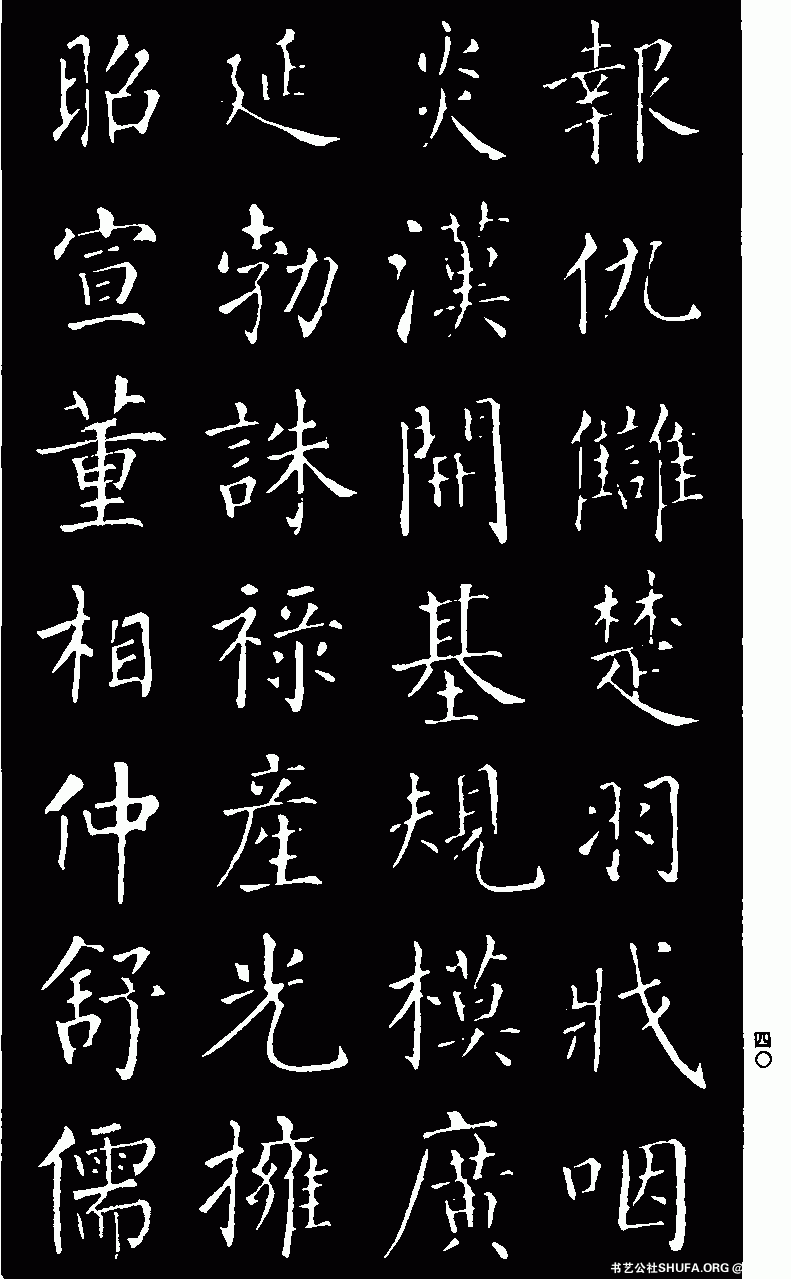 報仇讎楚羽戕咽
炎漢開基規模廣
延勃誅祿產光擁
昭宣董相仲舒儒
四〇
书艺公社SHUFA.ORG @